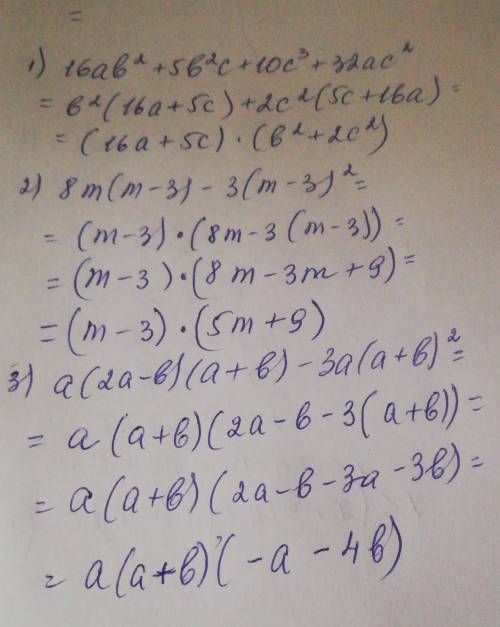 =
1) 16ab² + 5b²c + 10c³ + 32ac²
= b²(16a + 5c) + 2c²(5c + 16a) =
= (16a + 5c) · (b² + 2c²)
2) 8m(m - 3) - 3(m - 3)² =
= (m - 3) · (8m - 3(m - 3)) =
= (m - 3) · (8m - 3m + 9) =
= (m - 3) · (5m + 9)
3) a(2a - b)(a + b) - 3a(a + b)² =
= a(a + b)(2a - b - 3(a + b)) =
= a(a + b)(2a - b - 3a - 3b) =
= a(a + b)(-a - 4b)